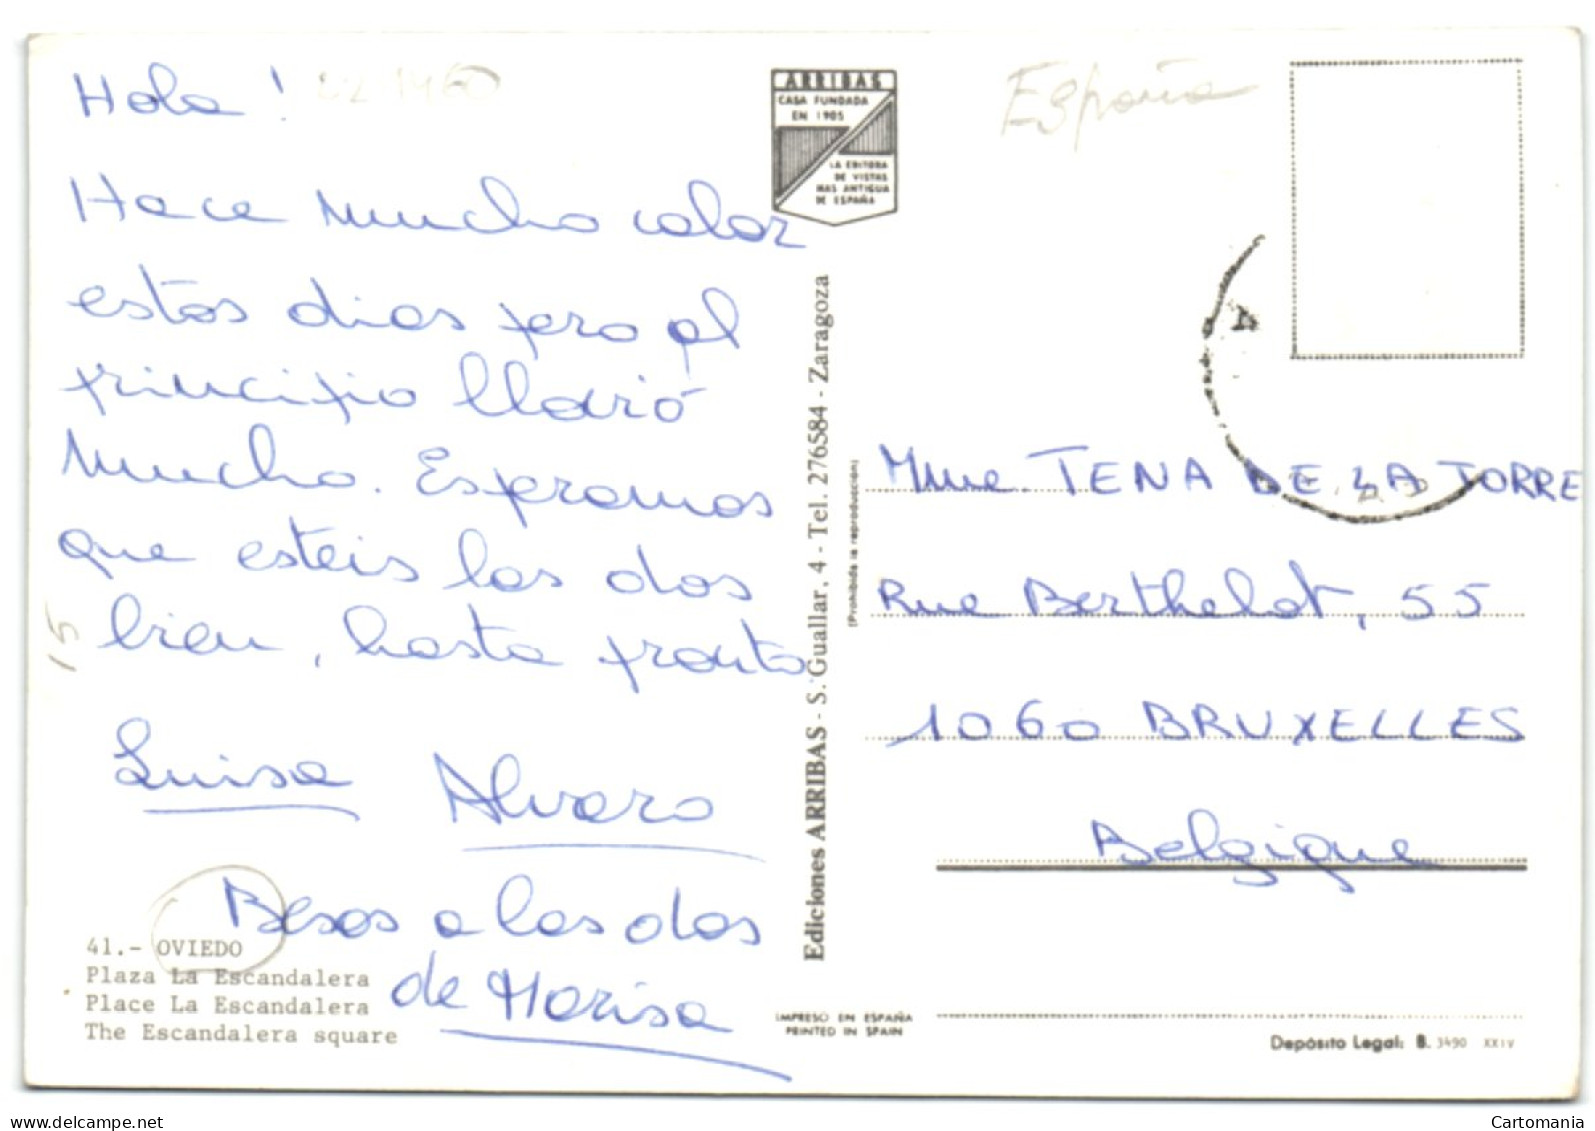 Hola !
Hace mucho calor
estos dias pero al
principio llovió
mucho. Esperamos
que esteis los dos
bien, hasta pronto
Luisa Alvaro
Besos a los dos
de Marisa
41.- OVIEDO
Plaza La Escandalera
Place La Escandalera
The Escandalera square
ARRIBAS
CASA FUNDADA
EN 1905
LA EDITORA
DE VISTAS
MAS ANTIGUA
DE ESPAÑA
Ediciones ARRIBAS - S. Guallar, 4 - Tel. 276584 - Zaragoza
(Prohibida la reproducción)
IMPRESO EN ESPAÑA
PRINTED IN SPAIN
España
A
Mme. TENA DE LA TORRE
Rue Berthelot, 55
1060 BRUXELLES
Belgique
Depósito Legal: B. 3490 XXIV
www.delcampe.net
Cartomania